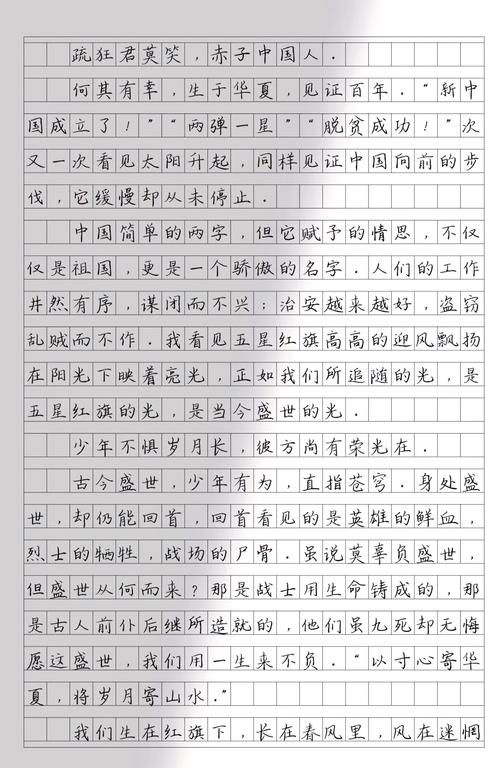 疏狂君莫笑，赤子中国人．
何其有幸，生于华夏，见证百年．“新中
国成立了！”“两弹一星”“脱贫成功！”次
又一次看见太阳升起，同样见证中国向前的步
伐，它缓慢却从未停止．
中国简单的两字，但它赋予的情思，不仅
仅是祖国，更是一个骄傲的名字．人们的工作
井然有序，谋闭而不兴；治安越来越好，盗窃
乱贼而不作．我看见五星红旗高高的迎风飘扬
在阳光下映着亮光，正如我们所追随的光，是
五星红旗的光，是当今盛世的光．
少年不惧岁月长，彼方尚有荣光在．
古今盛世，少年有为，直指苍穹．身处盛
世，却仍能回首，回首看见的是英雄的鲜血，
烈士的牺牲，战场的尸骨．虽说莫辜负盛世，
但盛世从何而来？那是战士用生命铸成的，那
是古人前仆后继所造就的，他们虽九死却无悔
愿这盛世，我们用一生来不负．“以寸心寄华
夏，将岁月寄山水．”
我们生在红旗下，长在春风里，风在迷惘